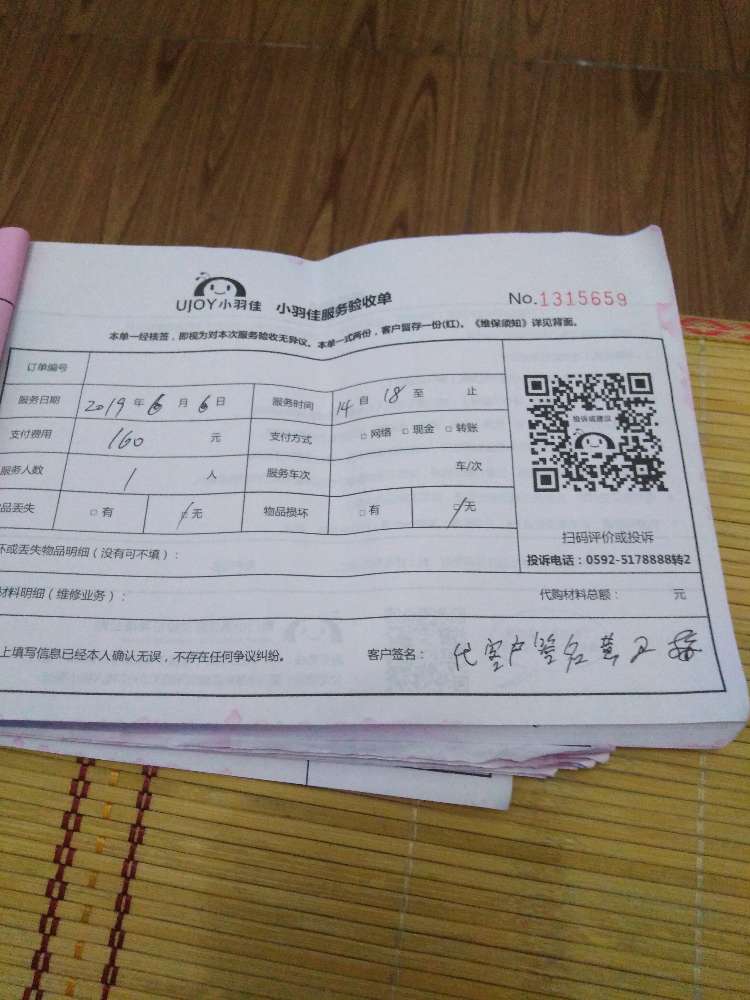 UJOY小羽佳 小羽佳服务验收单 No.1315659
本单一经核签，即视为对本次服务验收无异议。本单一式两份，客户留存一份(红)。《维保须知》详见背面。
订单编号
服务日期 2019年6月6日 服务时间 14自18至 止
支付费用 160 元 支付方式 □网络 □现金 □转账
服务人数 1 人 服务车次 车/次
品丢失 □有 □无 物品损坏 □有 □无
投诉或建议
扫码评价或投诉
投诉电话：0592-5178888转2
坏或丢失物品明细（没有可不填）：
材料明细（维修业务）： 代购材料总额： 元
上填写信息已经本人确认无误，不存在任何争议纠纷。 客户签名： 代客户签名黄